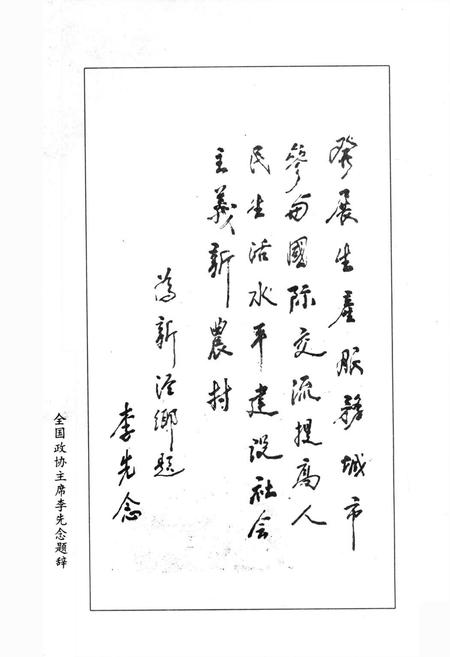 發展生產服務城市
參与國际交流提高人
民生活水平建設社会
主義新農村
为新泾鄉題
李先念
全国政协主席李先念题辞